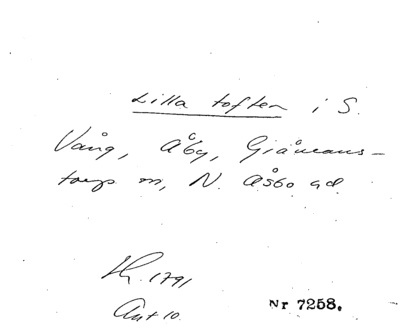 Lilla toften i S.
Vång, Åby, Gråmans-
torps sn, N. Åsbo hd.
Th. 1791
Akt 10.
Nr 7258.